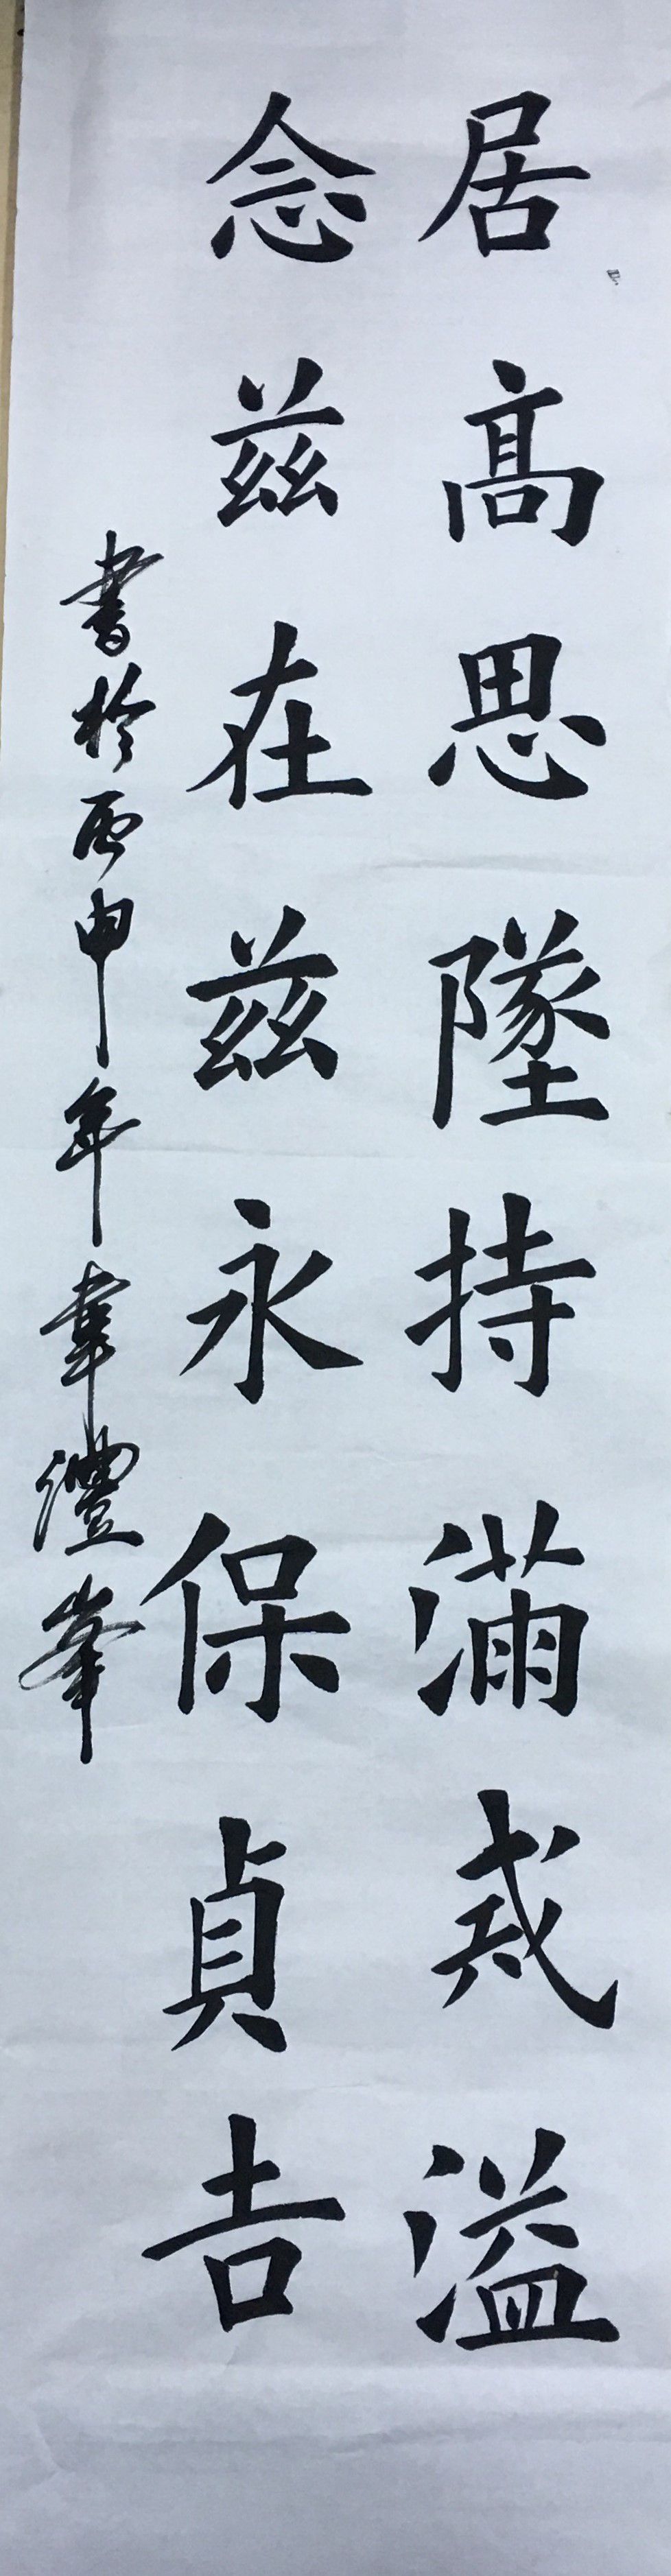 居高思墜持滿戒溢
念茲在茲永保貞吉
書於丙申年韋澧峯